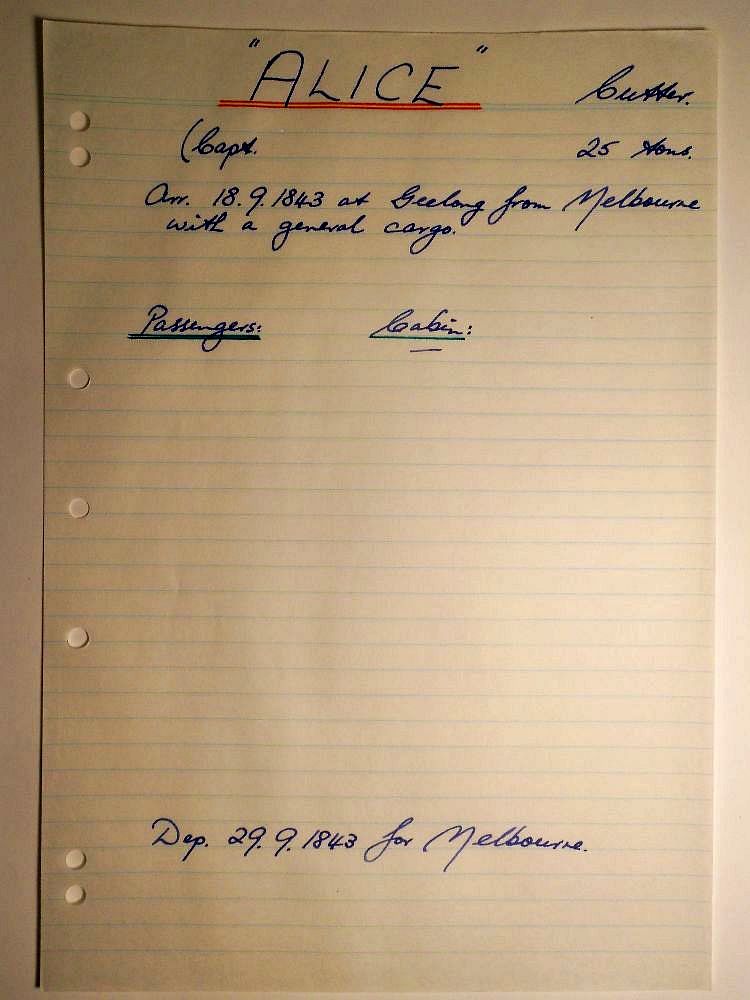 "ALICE"
Cutter.
(Capt. 25 tons.
Arr. 18.9.1843 at Geelong from Melbourne
with a general cargo.
Passengers: Cabin:
—
Dep. 29.9.1843 for Melbourne.